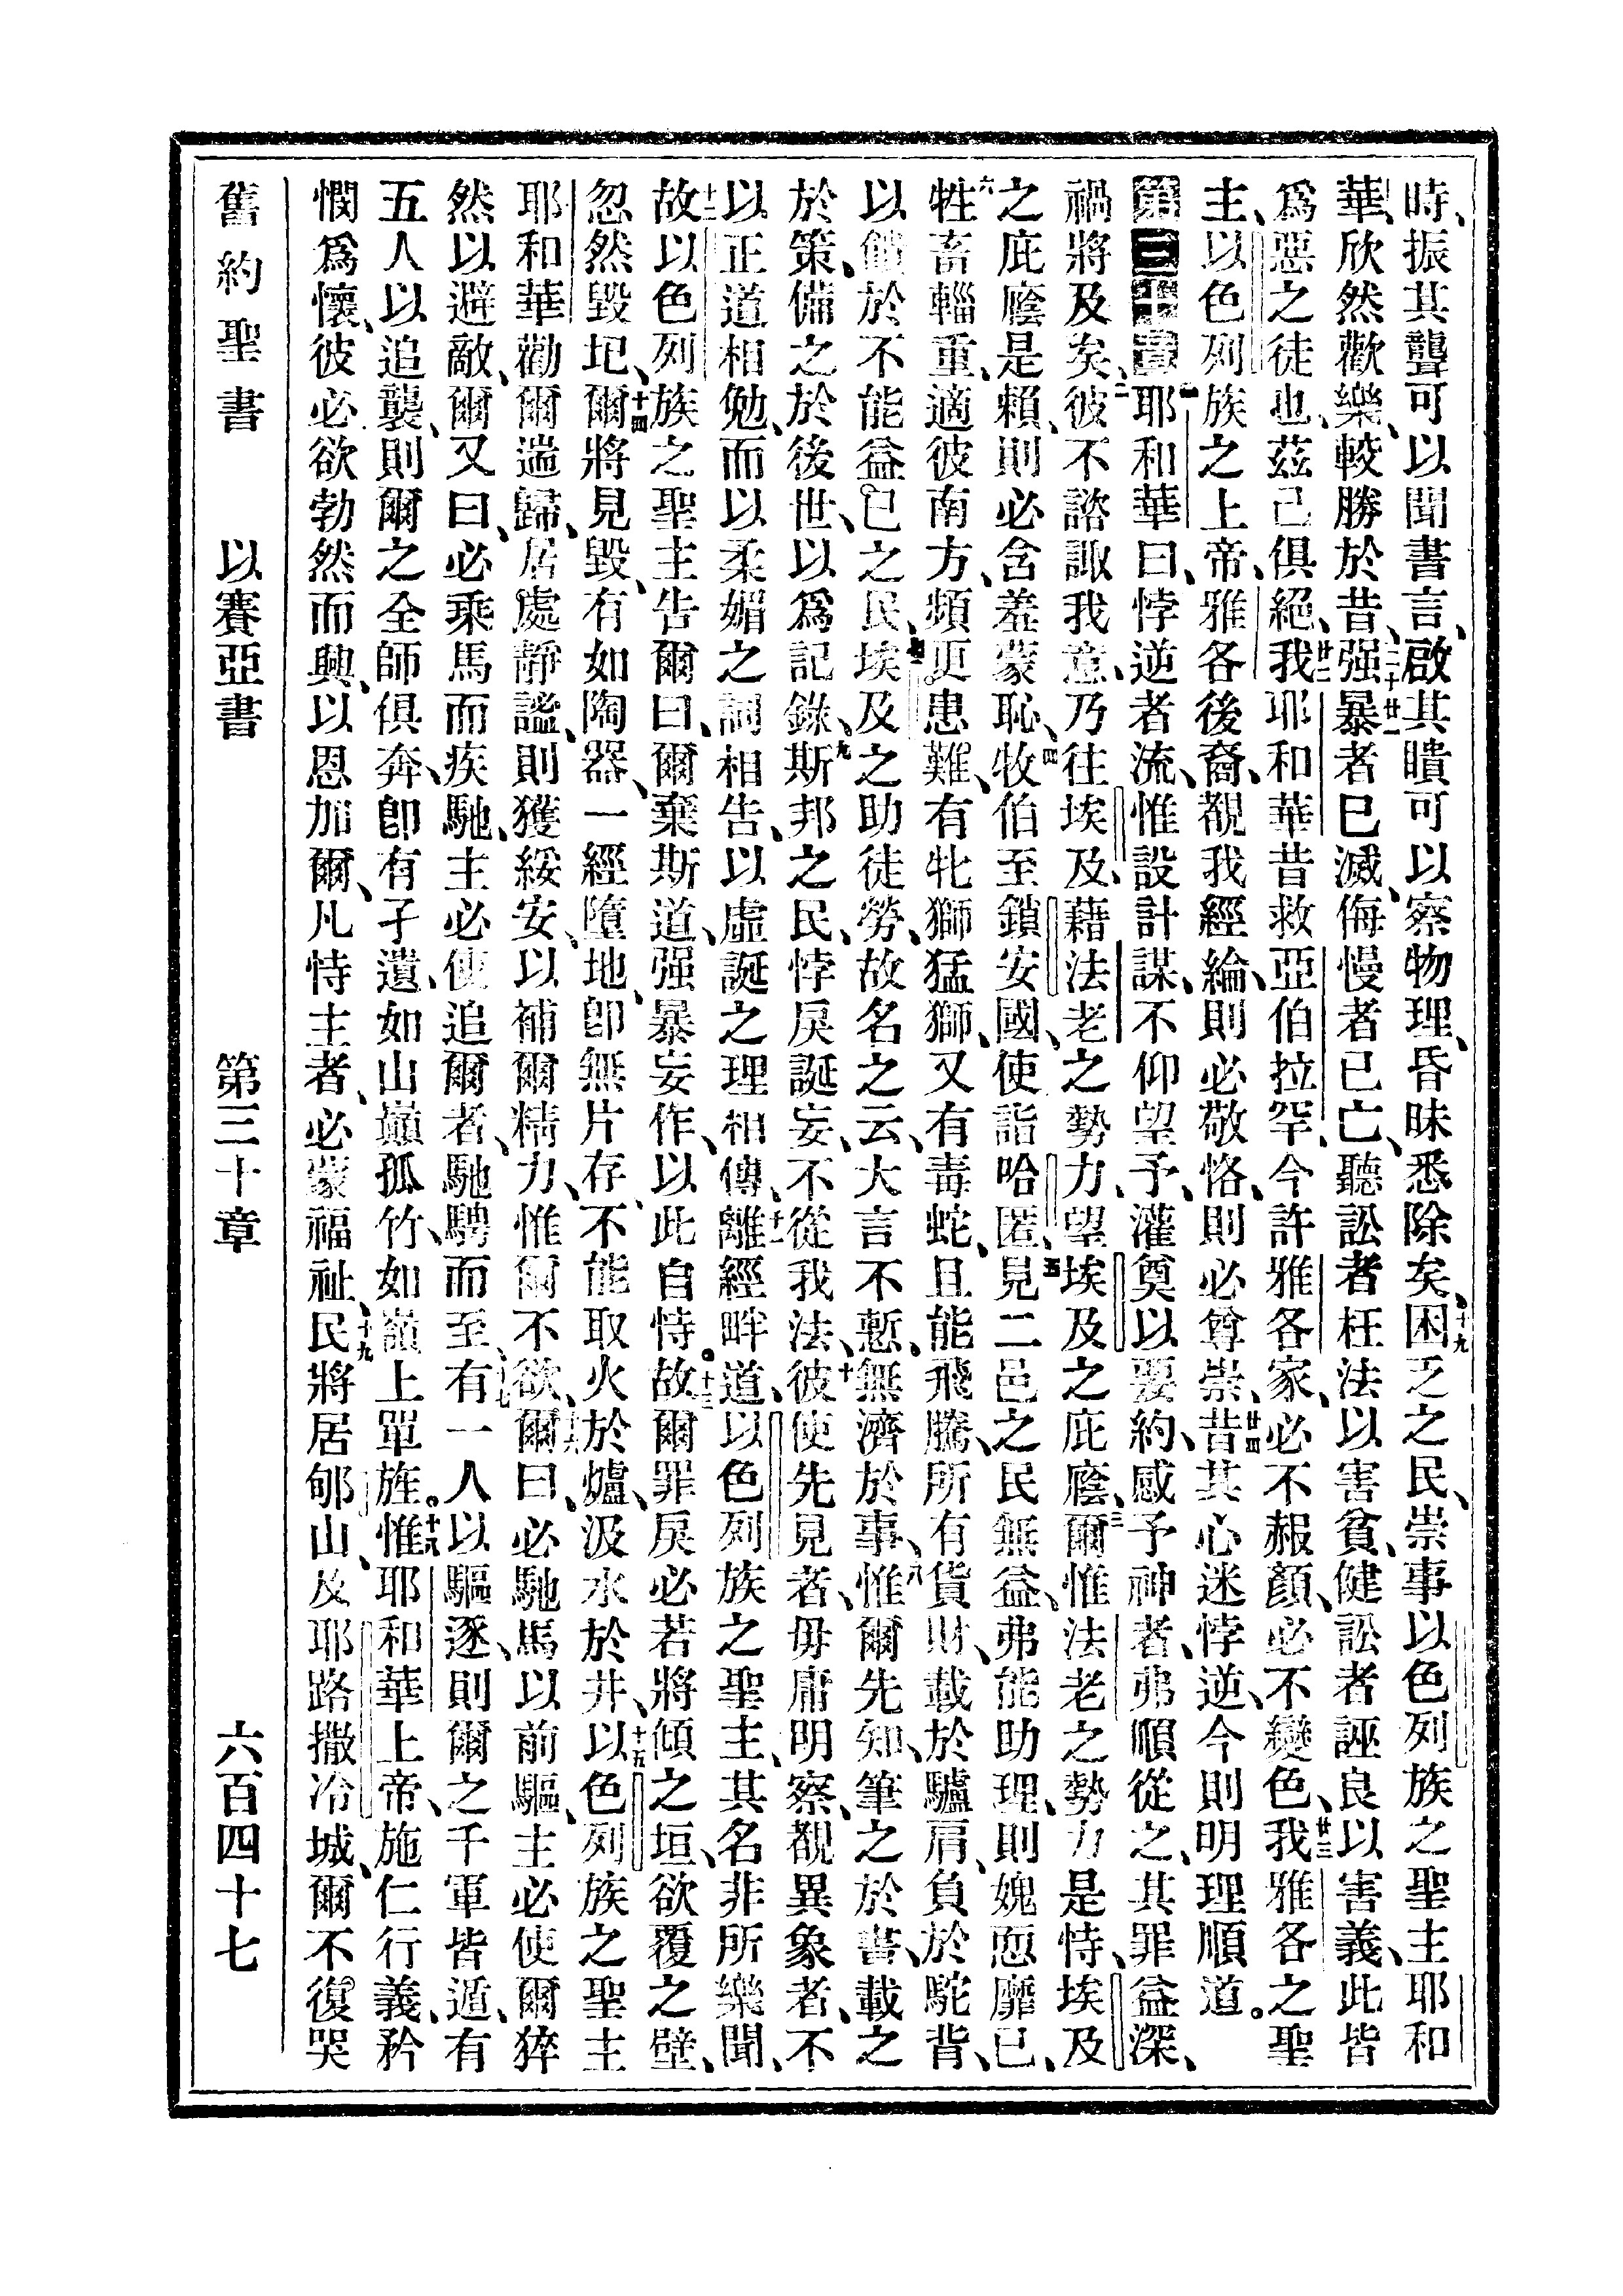 時、振其聾可以聞書言、啟其瞶可以察物理、昏昧悉除矣、十九困乏之民、崇事以色列族之聖主耶和
華、欣然歡樂、較勝於昔、二十强暴者已滅、侮慢者已亡、聽訟者枉法以害貧、健訟者誣良以害義、此皆
爲惡之徒也、茲已俱絕、廿二我耶和華昔救亞伯拉罕、今許雅各家、必不赧顏、必不變色、廿三我雅各之聖
主、以色列族之上帝、雅各後裔、覩我經綸、則必敬恪、則必尊崇、廿四昔其心迷悖逆、今則明理順道。
第三十章一耶和華曰、悖逆者流、惟設計謀、不仰望予、灌奠以要約、感予神者、弗順從之、其罪益深、
禍將及矣、二彼不諮諏我意、乃往埃及、藉法老之勢力、望埃及之庇廕、三爾惟法老之勢力是恃、埃及
之庇廕是賴、則必含羞蒙恥、四牧伯至鎖安國、使詣哈匿、五見二邑之民無益、弗能助理、則媿恧靡已、
六牲畜輜重、適彼南方、頻更患難、有牝獅猛獅、又有毒蛇、且能飛騰、所有貨財、載於驢肩、負於駝背、
以餽於不能益己之民、七埃及之助徒勞、故名之云、大言不慙、無濟於事、八惟爾先知、筆之於書、載之
於策、備之於後世、以爲記錄、九斯邦之民、悖戾誕妄、不從我法、十彼使先見者、毋庸明察、覩異象者、不
以正道相勉、而以柔媚之詞相告、以虛誕之理相傳、十一離經畔道、以色列族之聖主、其名非所樂聞、
十二故以色列族之聖主告爾曰、爾棄斯道、强暴妄作、以此自恃。十三故爾罪戾必若將傾之垣、欲覆之壁、
忽然毀圮、十四爾將見毀、有如陶器、一經墮地、卽無片存、不能取火於爐、汲水於井、十五以色列族之聖主
耶和華勸爾遄歸、居處靜謐、則獲綏安、以補爾精力、惟爾不欲、十六爾曰、必馳馬以前驅、主必使爾猝
然以避敵、爾又曰、必乘馬而疾馳、主必使追爾者、馳騁而至、十七有一人以驅逐、則爾之千軍皆遁、有
五人以追襲、則爾之全師俱奔、卽有孑遺、如山巔孤竹、如嶺上單旌。十八惟耶和華上帝、施仁行義、矜
憫爲懷、彼必欲勃然而興、以恩加爾、凡恃主者、必蒙福祉、十九民將居郇山、及耶路撒冷城、爾不復哭
舊約聖書　以賽亞書　第三十章　六百四十七